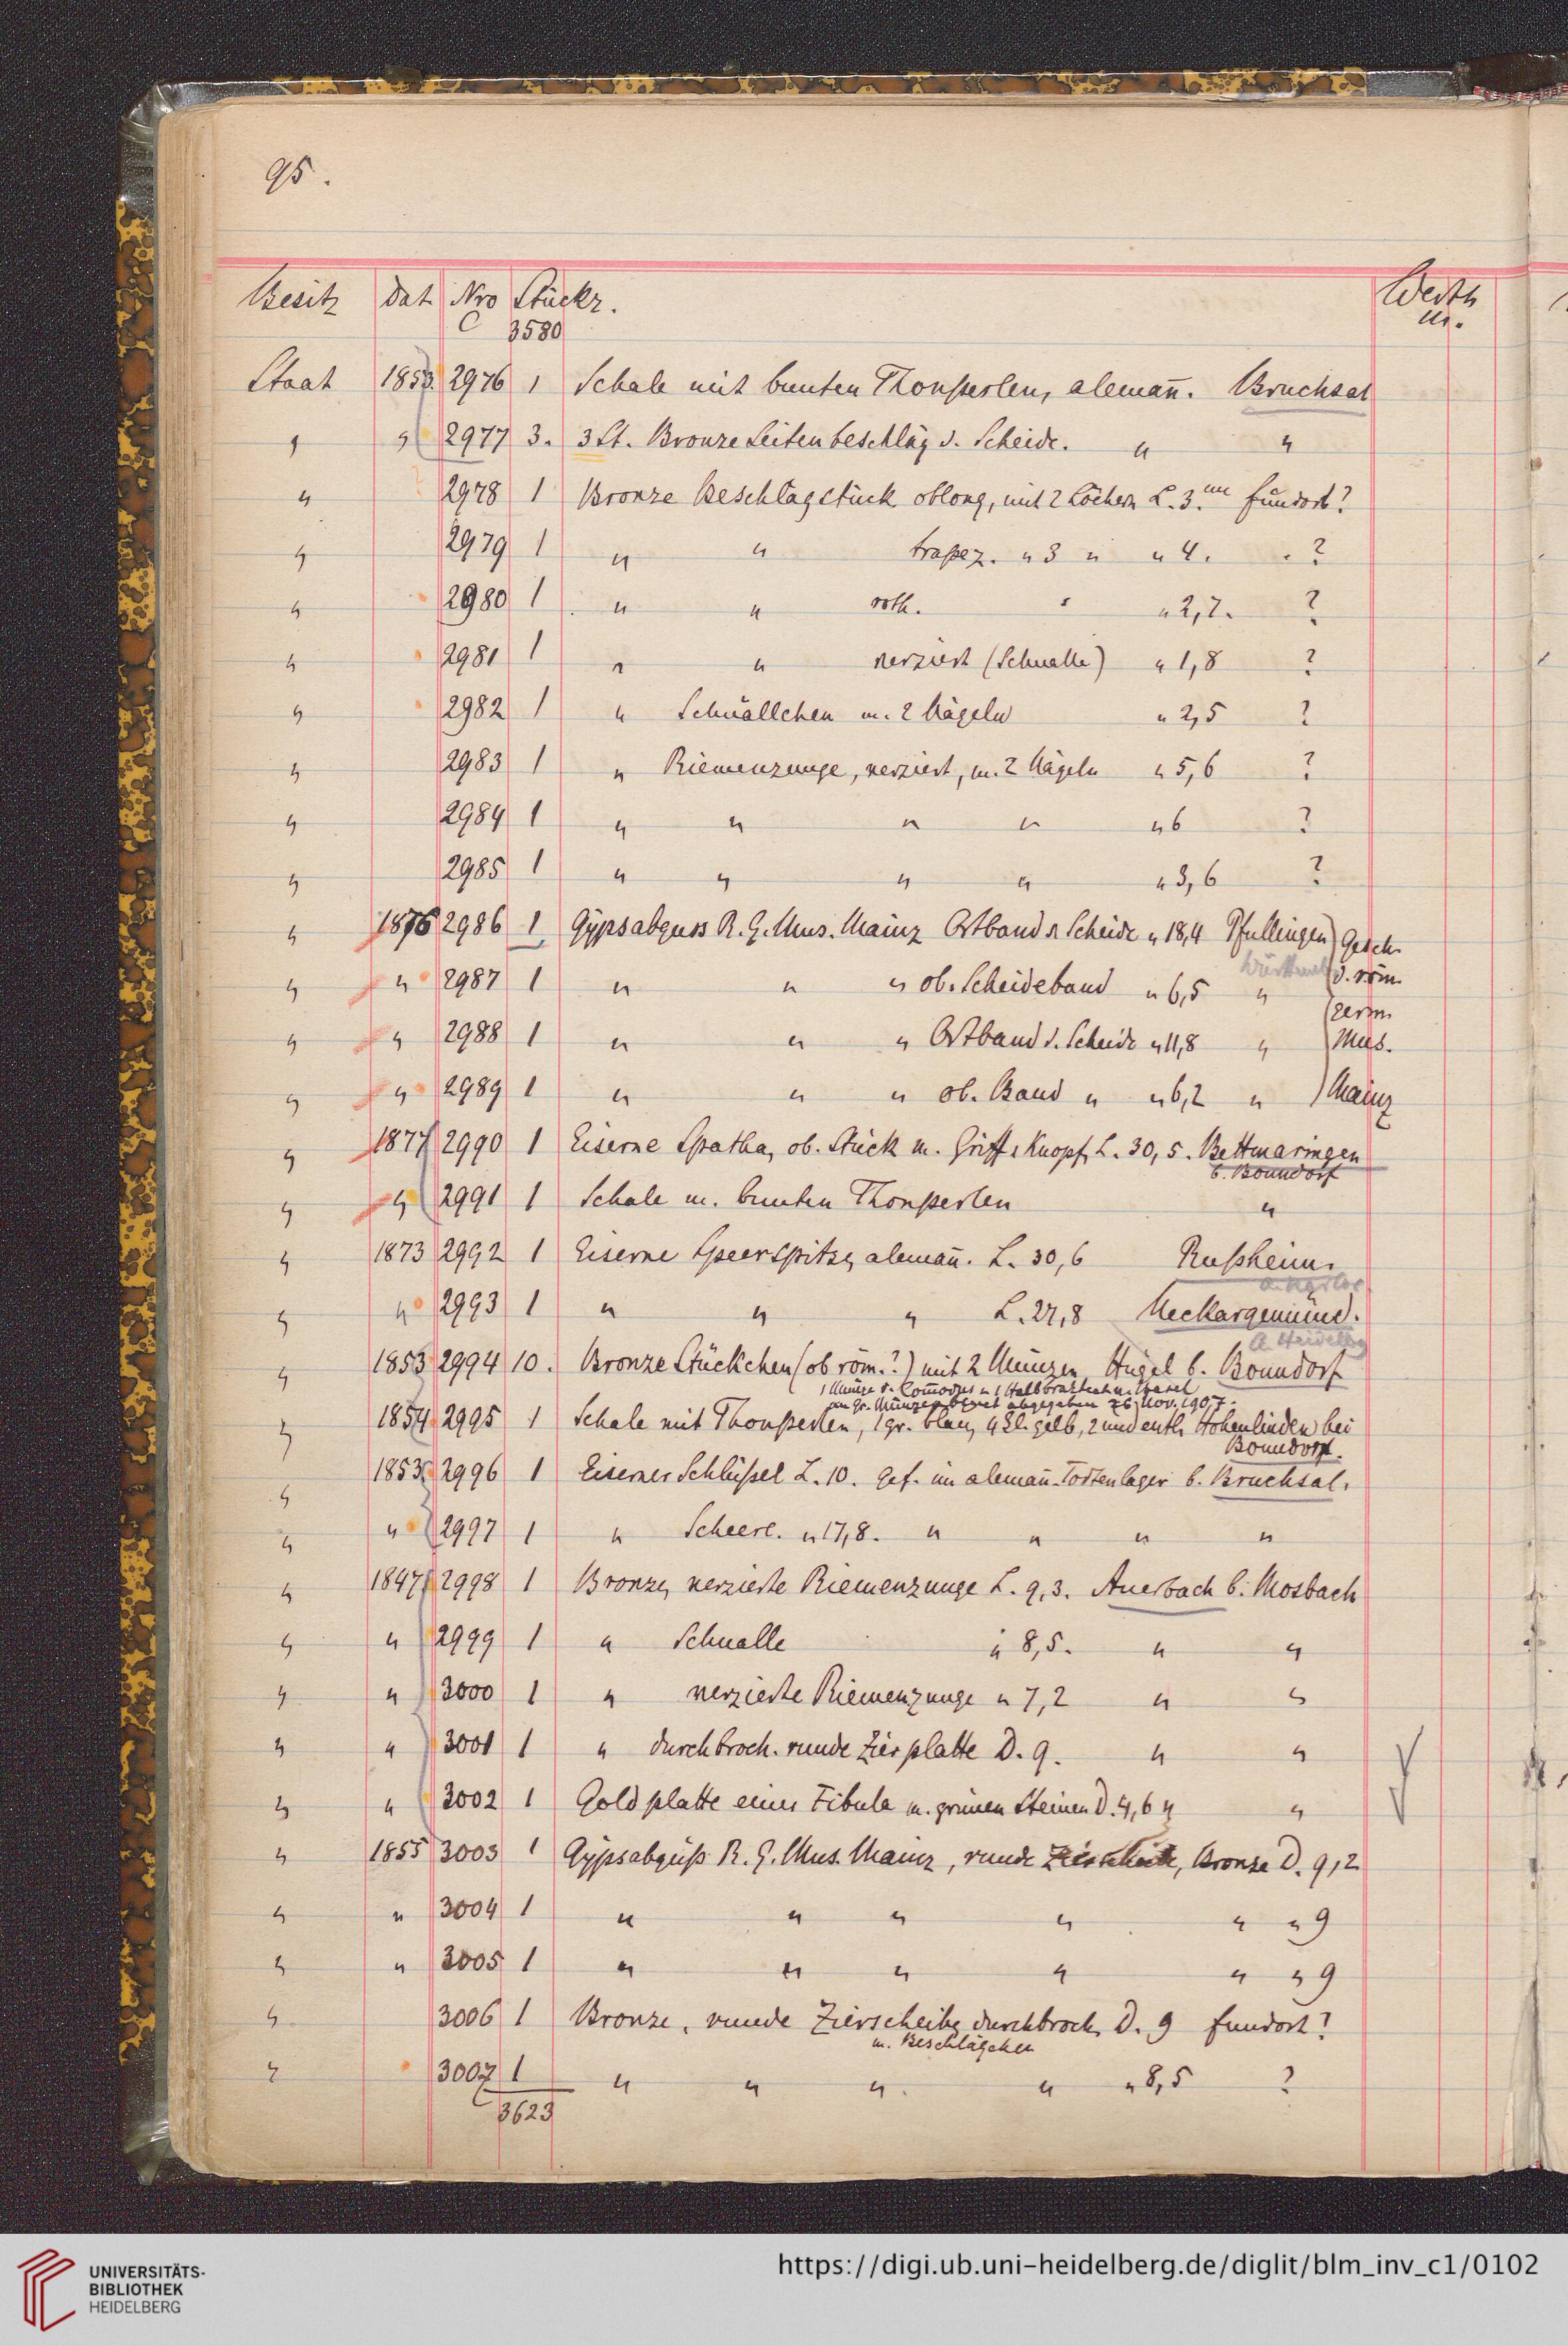 95.
Besitz dat Nro Stückz. Werth
C 3580 M.
Staat 1853. 2976 1 Schale mit bunten Thonperlen, aleman̄. Bruchsal
" " 2977 3. 3 St. Bronze Seitenbeschläg d. Scheide. " "
" 2978 1 Bronze Beschlagstück oblong, mit 2 Löchern L. 3. Fundort?
" 2979 1 " " trapez. " 3 " " 4. . ?
" 2980 1 " " roth. " " 2,7. ?
" 2981 1 " " verziert (Schnalle) " 1,8 ?
" 2982 1 " Schnällchen m. 2 Nägeln " 2,5 ?
" 2983 1 " Riemenzunge, verziert, m. 2 Nägeln " 5,6 ?
" 2984 1 " " " " " 6 ?
" 2985 1 " " " " " 3,6 ?
" 1876 2986 1 Gypsabguss R. G. Mus. Mainz Ortband d Scheide " 18,4 Pfullingen Gesch.
" " 2987 1 " " " ob. Scheideband " 6,5 " d. röm.
germ.
" " 2988 1 " " " Ortband d. Scheide " 11,8 " Mus.
" " 2989 1 " " " ob. Band " " 6,2 " Mainz
" 1877 2990 1 Eiserne Spatha, ob. Stück m. Griff & Knopf, L. 30,5. Bettmaringen
b. Bonndorf
" " 2991 1 Schale m. bunten Thonperlen "
" 1873 2992 1 Eiserne Speerspitze, aleman̄. L. 30,6 Rußheim.
" " 2993 1 " " " L. 27,8 Neckargemünd.
A. Heidelbg
" 1853 2994 10. Bronze Stückchen (ob röm.?) mit 2 Münzen Hügel b. Bonndorf
1 Münze v. Com̄odus u 1 Halbbrakteat v. Basel
an Gr. Münzcabinet abgegeben 26. Nov. 1907.
" 1854 2995 1 Schale mit Thonperlen, 1 gr. blau, 4 kl. gelb, 2 undeutl. Hohenlinden bei
Bonndorf.
" 1853 2996 1 Eiserner Schlüßel L. 10. Gef. im aleman̄. Todtenlager b. Bruchsal.
" " 2997 1 " Scheere. " 17,8. " " " "
" 1847 2998 1 Bronze, verzierte Riemenzunge L. 9,3. Auerbach b. Mosbach
" " 2999 1 " Schnalle " 8,5. " "
" " 3000 1 " verzierte Riemenzunge " 7,2 " "
" " 3001 1 " durchbroch. runde Zierplatte D. 9. " "
" " 3002 1 Goldplatte einer Fibula m. grünen Steinen D. 4,6 " "
" 1855 3003 1 Gypsabguß R. G. Mus. Mainz, runde Zierscheibe, Bronze D. 9,2
" " 3004 1 " " " " " " 9
" " 3005 1 " " " " " " 9
" 3006 1 Bronze, runde Zierscheibe, durchbroch. D. 9 Fundort?
m. Beschlägchen
" 3007 1 " " " " " 8,5 ?
3623
UNIVERSITÄTS-
BIBLIOTHEK
HEIDELBERG
https://digi.ub.uni-heidelberg.de/diglit/blm_inv_c1/0102